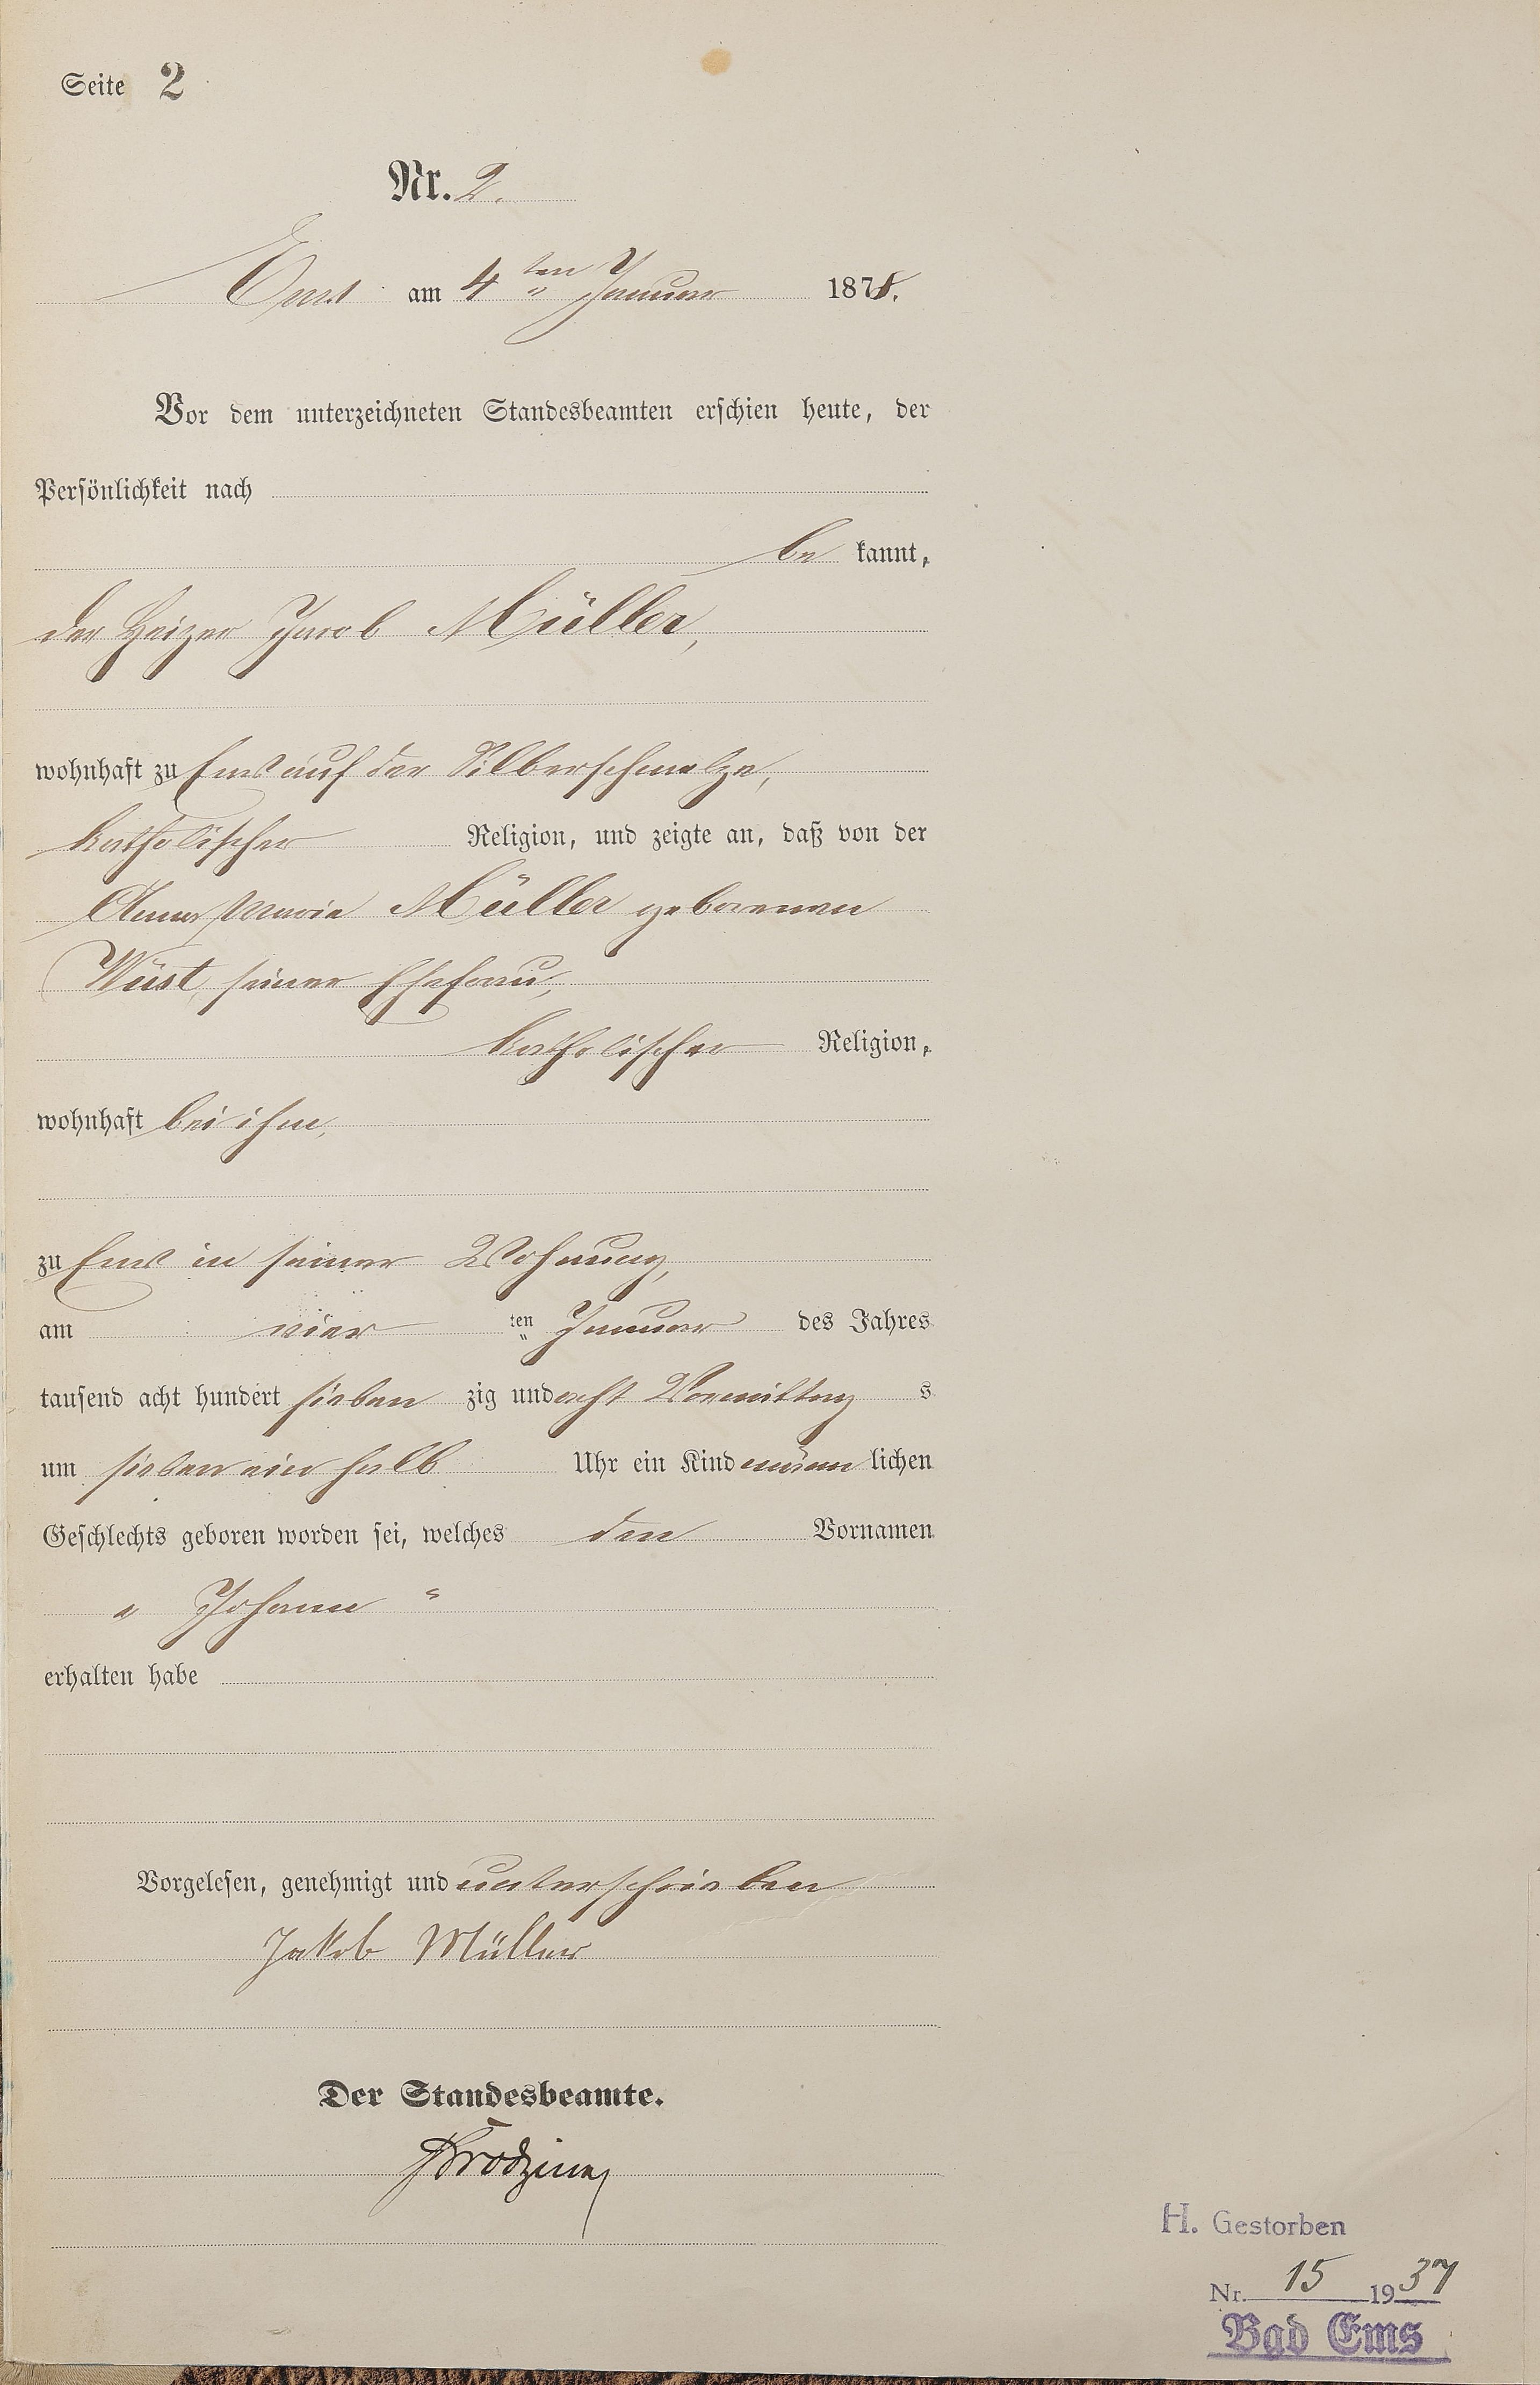 Seite 2
Nr. 2.
Ems am 4ten Januar 1878.
Vor dem unterzeichneten Standesbeamten erschien heute, der
Persönlichkeit nach
be kannt,
der Heizer Jacob Müller,
wohnhaft zu Ems auf der Silberschmelze,
katholischer Religion, und zeigte an, daß von der
Anna Maria Müller geborenen
Wüst, seiner Ehefrau,
katholischer Religion,
wohnhaft bei ihm,
zu Ems in seiner Wohnung,
am vier ten Januar des Jahres
tausend acht hundert sieben zig und acht Vormittag s
um sieben ein halb Uhr ein Kind männ lichen
Geschlechts geboren worden sei, welches den Vornamen
„ Johann “
erhalten habe
Vorgelesen, genehmigt und unterschrieben
Jakob Müller
Der Standesbeamte.
H. Gestorben
Nr. 15 1937
Bad Ems